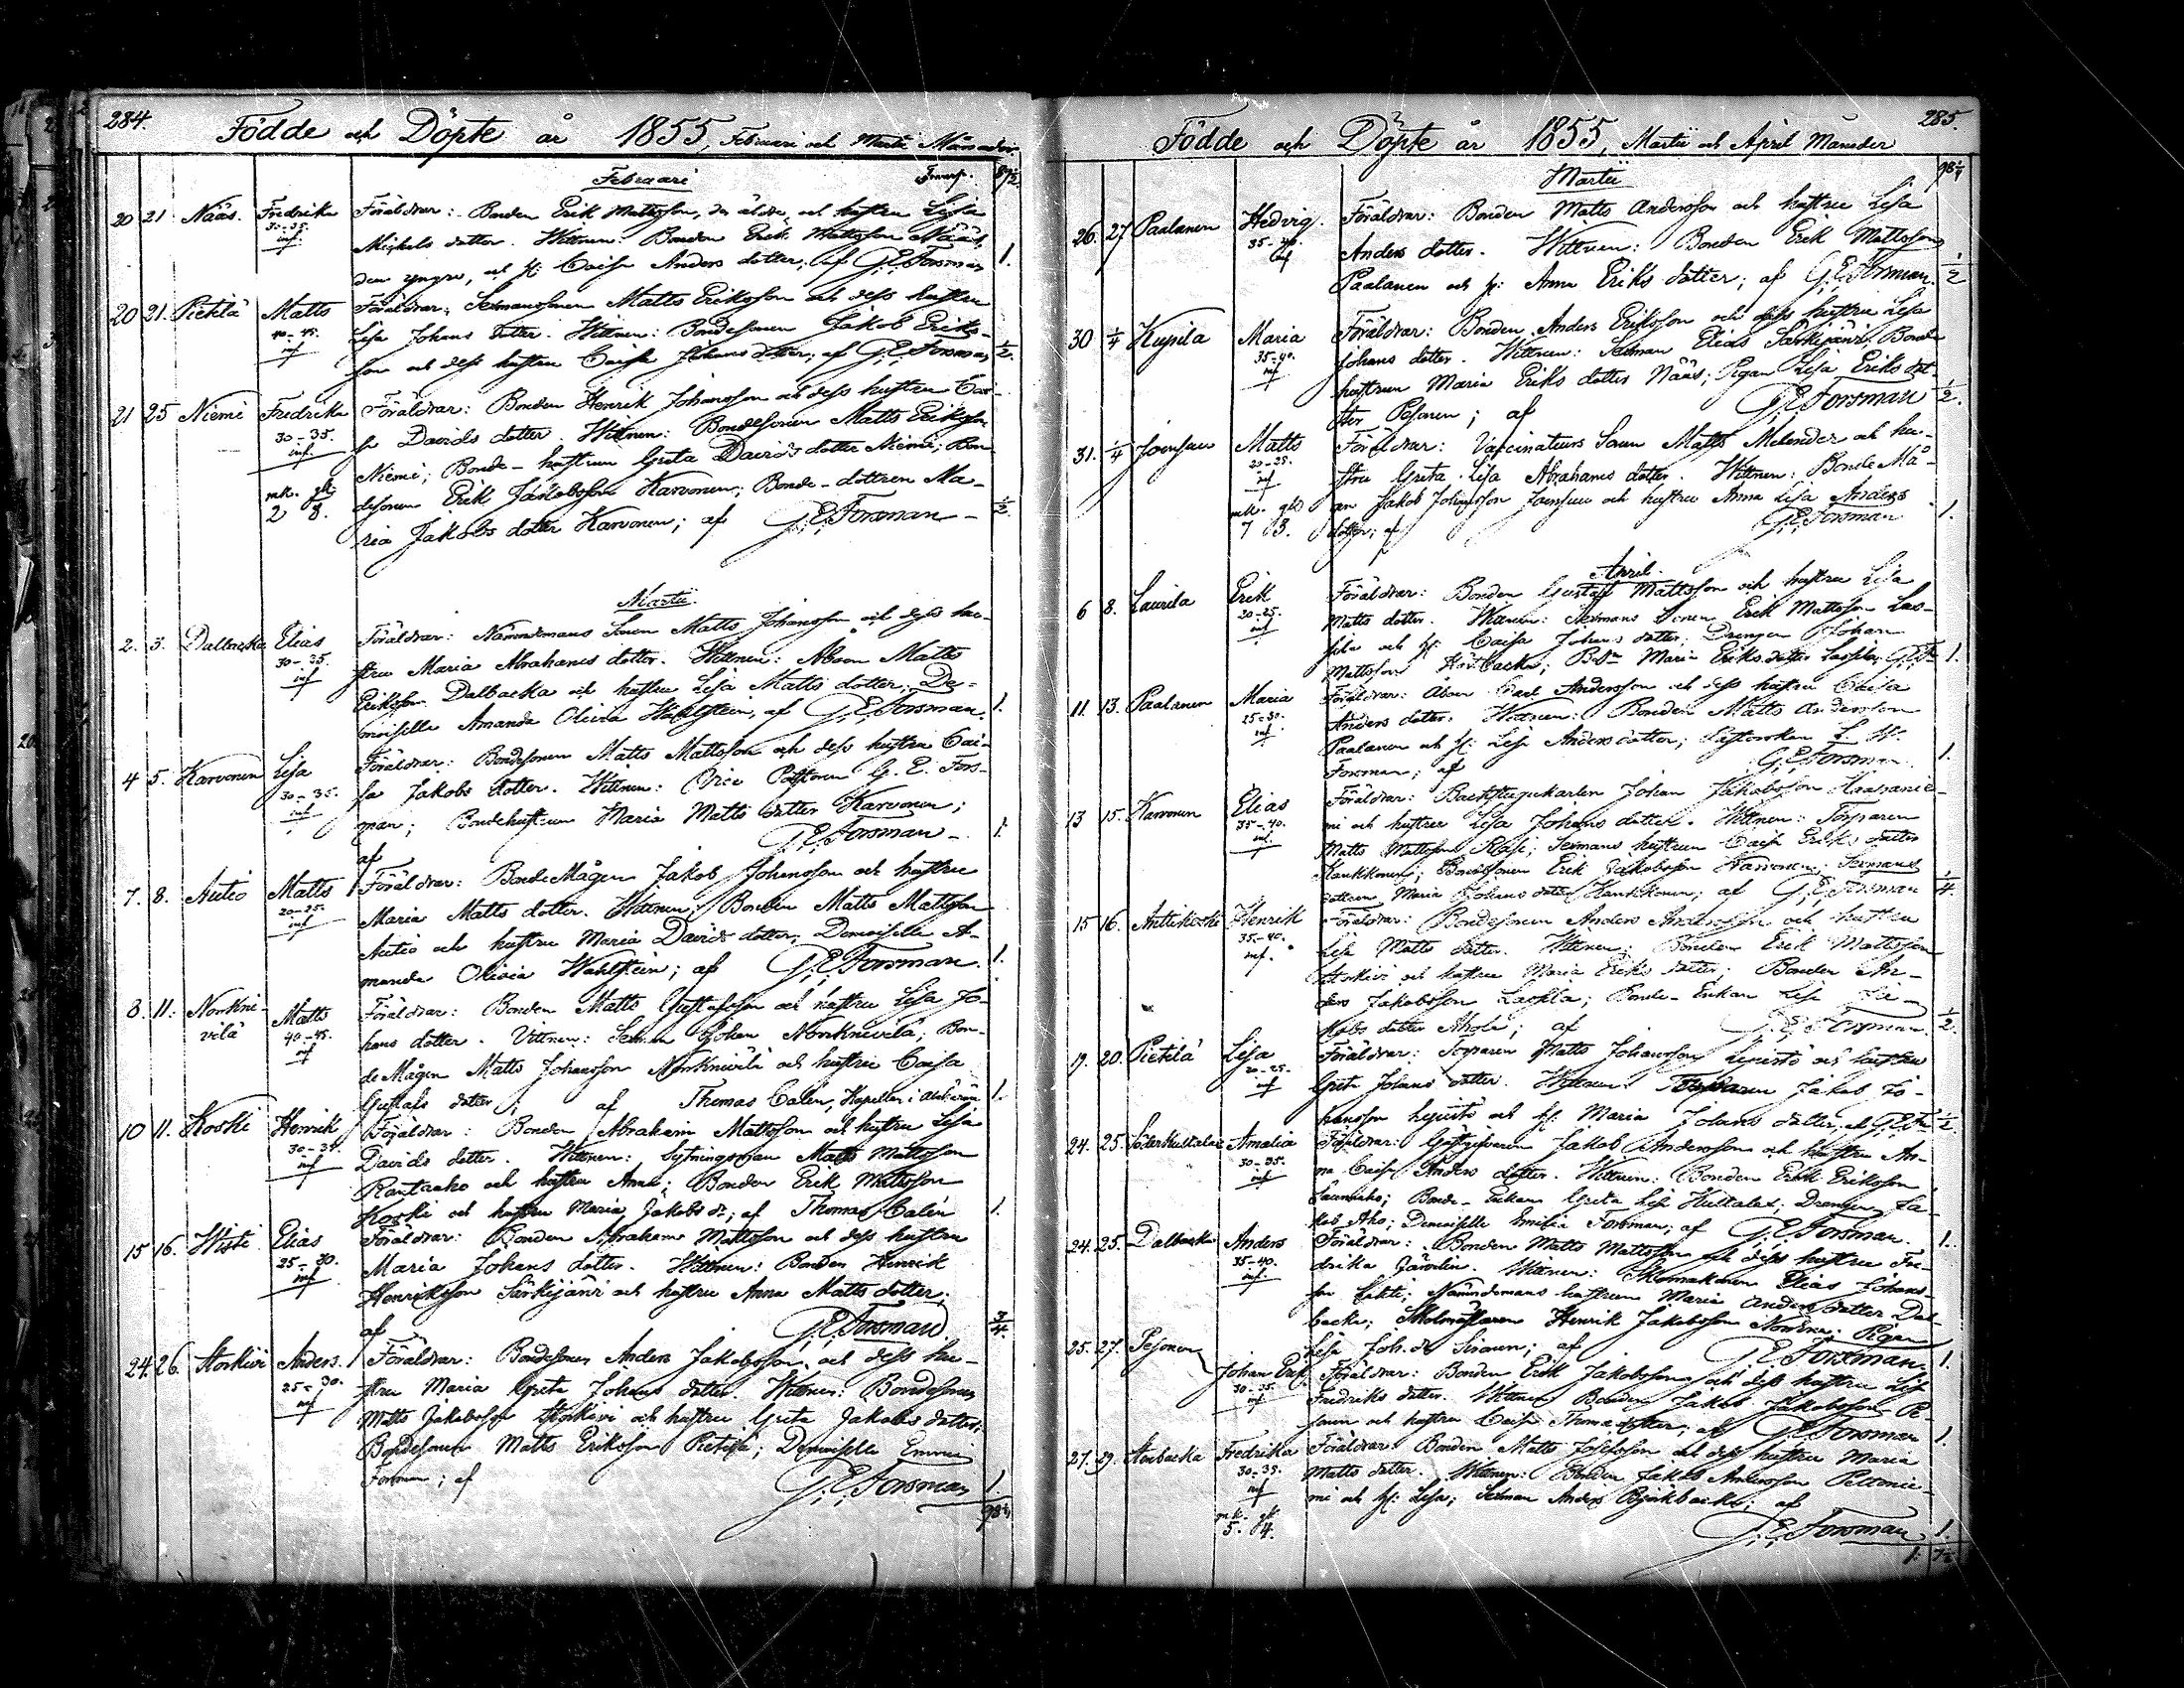 284.
Födde och Döpte år 1855, Februari och Martii Månader.
Februari
Transp. 89 1/2
20 21 Nääs. Fredrika Föräldrar: Bonden Erik Mattsson, den äldre, och hustru Lisa
30-35. inf. Michels dotter. Wittnen: Bonden Erik Mattsson Nääs,
den yngre, och h: Caisa Anders dotter; af G. E. Forsman 1.
20 21. Pietilä Matts Föräldrar: Sexmanssonen Matts Eriksson och dess hustru
40-45. inf Lisa Johans dotter. Wittnen: Bondesonen Jakob Eriks-
son och dess hustru Caisa Johans dotter; af G. E. Forsman 1/2.
21 25 Niemi Fredrika Föräldrar: Bonden Henrik Johansson och dess hustru Cai-
30-35. inf. sa Davids dotter. Wittnen: Bondesonen Matts Eriksson
Niemi; Bonde-hustrun Greta Davids dotter Niemi; Bon-
mk. qk. desonen Erik Jakobsson Karvonen; Bonde-dottren Ma-
2 8. ria Jakobs dotter Karvonen; af G. E. Forsman - 1/2
Martii.
2. 3. Dalbacka Elias Föräldrar: Nämndemans Sonen Matts Johansson och dess hu-
30-35. inf stru Maria Abrahams dotter. Wittnen: Åboen Matts
Eriksson Dalbacka och hustru Lisa Matts dotter; De-
moiselle Amanda Olivia Wahlstein, af G. E. Forsman. 1.
4 5. Karvonen Lisa Föräldrar: Bondesonen Matts Mattsson och dess hustru Cai-
30-35. inf sa Jakobs dotter. Wittnen: Vice Pastoren G. E. Fors-
man; Bondehustrun Maria Matts dotter Karvonen;
af G. E. Forsman - 1.
7. 8. Autio Matts Föräldrar: BondeMågen Jakob Johansson och hustru
20-25. inf Maria Matts dotter. Wittnen: Bonden Matts Mattsson
Autio och hustru Maria Davids dotter; Demoiselle A-
manda Olivia Wahlstein; af G. E. Forsman. 1.
8. 11. Norrkni- Matts Föräldrar: Bonden Matts Gustafsson och hustru Lisa Jo-
vilä 40-45. inf hans dotter. Vittnen: Sexman Johan Norrknivilä; Bon-
de Mågen Matts Johansson Norrknivilä och hustru Caisa
Gustafs dotter; af Thomas Calen, Kapellan i 1.
10 11. Koski Henrik Föräldrar: Bonden Abraham Mattsson och hustru Lisa
30-35. inf Davids dotter. Wittnen: Sytningsman Matts Mattsson
Rantaaho och hustru Anna; Bonden Erik Mattsson
Koski och hustru Maria Jakobs dr; af Thomas Calén 1.
15 16. Wisti Elias Föräldrar: Bonden Abraham Mattsson och dess hustru
25-30. inf Maria Johans dotter. Wittnen: Bonden Henrik
Henriksson Särkijärvi och hustru Anna Matts dotter;
af G. E. Forsman 3/4.
24. 26. Storkivi Anders. Föräldrar: Bondesonen Anders Jakobsson, och dess hu-
25-30. inf stru Maria Greta Johans dotter. Wittnen: Bondesonen
Matts Jakobsson Storkivi och hustru Greta Jakobs dotter;
Bondesonen Matts Eriksson Pietilä; Demoiselle Emma
Forsman; af G. E. Forsman 1.
98 1/4
285.
Födde och Döpte år 1855, Martii och April Månader
Martii 98 1/4
26. 27 Paalanen Hedvig. Föräldrar: Bonden Matts Andersson och hustru Lisa
35-40. inf Anders dotter. Wittnen: Bonden Erik Mattsson
Paalanen och h: Anna Eriks dotter; af G. E. Forsman. 1/2
30 1/4 Kujsila Maria Föräldrar: Bonden Anders Eriksson och dess hustru Lisa
35-40. inf Johans dotter. Wittnen: Sexman Elias Särkijärvi; Bonde
hustrun Maria Eriks dotter Nääs; Pigan Lisa Eriks dot-
ter Pesonen; af G. E. Forsman 1/2.
31. 1/4 Joensuu Matts Föräldrar: Vaccinateurs Sonen Matts Melender och hu-
20-25. inf stru Greta Lisa Abrahams dotter. Wittnen: Bonde Må-
mk. qk. gen Jakob Johansson Joensuu och hustru Anna Lisa Anders
7 3. dotter; af G. E. Forsman 1.
April.
6 8. Laurila Erik Föräldrar: Bonden Gustaf Mattsson och hustru Lisa
20-25. inf Matts dotter. Wittnen: Sexmans Sonen Erik Mattsson Las-
sila och h: Caisa Johans dotter; Drengen Johan
Mattsson; Maria Eriks dotter Lassila; G. E. Fn 1.
11. 13. Paalanen Maria Föräldrar: Åbon Carl Andersson och dess hustru Caisa
25-30. inf. Anders dotter. Wittnen: Bonden Matts Andersson
Paalanen och h: Lisa Anders dotter;
Forsman; af G. E. Forsman. 1.
13 15. Karvonen Elias Föräldrar: Backstugukarlen Johan Jakobsson
35-40. inf. och hustru Lisa Johans dotter. Wittnen: Torparen
Matts Mattsson; Sexmans hustrun Caisa Eriks dotter
Kaukkonen; Bondesonen Erik Jakobsson Karvonen; Sexmans
dottren Maria Johans dotter Kaukkonen; af G. E. Forsman 1/4.
15 16. Anttikoski Henrik Föräldrar: Bondesonen Anders Andersson och hustru
35-40. inf. Lisa Matts dotter. Wittnen: Bonden Erik Mattsson
Storkivi och hustru Maria Eriks dotter; Bonden An-
ders Jakobsson Lassila; Bonde-Enkan Lisa Ja-
kobs dotter Ahola; af G. E. Forsman. 1/2
19. 20. Pietilä Lisa Föräldrar: Torparen Matts Johansson Lepistö och hustru
20-25. inf Greta Johans dotter. Wittnen: Torparen Jakob Jo-
hansson Lepistö och h: Maria Johans dotter; af G. E. Fn 1/2
24. 25. Amalia Föräldrar: Gästgifvaren Jakob Andersson och hustru An-
30-35. inf na Caisa Anders dotter. Wittnen: Bonden Erik Eriksson
; Bonde-Enkan Greta Lisa Huitalax; Drengen Ja-
kob Aho; Demoiselle Emilia Forsman; af G. E. Forsman. 1.
24. 25. Dalbacka Anders Föräldrar: Bonden Matts Mattsson och dess hustru Fre-
35-40. inf. drika. Wittnen: Skomakaren Elias Johans-
son Lahti; Nämndemans hustrun Maria Anders dotter Dal-
backa; Henrik Jakobsson; Pigan
Lisa Joh. dr Sironen; af G. E. Forsman. 1.
25. 27. Pesonen Johan Erik Föräldrar: Bonden Erik Jakobsson och dess hustru Lisa
30-35. inf Fredriks dotter. Wittnen: Bonden Jakob Jakobsson Pe-
sonen och hustru Caisa Thomæ dotter; af G. E. Forsman 1.
27. 29. Storbacka Fredrika Föräldrar: Bonden Matts Josefsson och dess hustru Maria
30-35. inf Matts dotter. Wittnen: Bonden Jakob Andersson Peltonie-
mi och h: Lisa; Sexman Anders Björkbacka; af
mk. qk.
5. 4. G. E. Forsman 1.